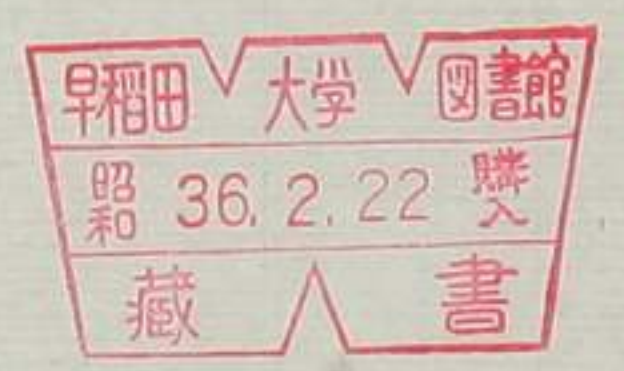 早稲田大学図書館
昭和 36. 2. 22 購入
蔵書